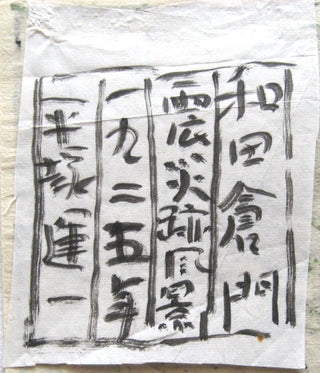 和田倉門
震災跡風景
一九二五年
平塚運一